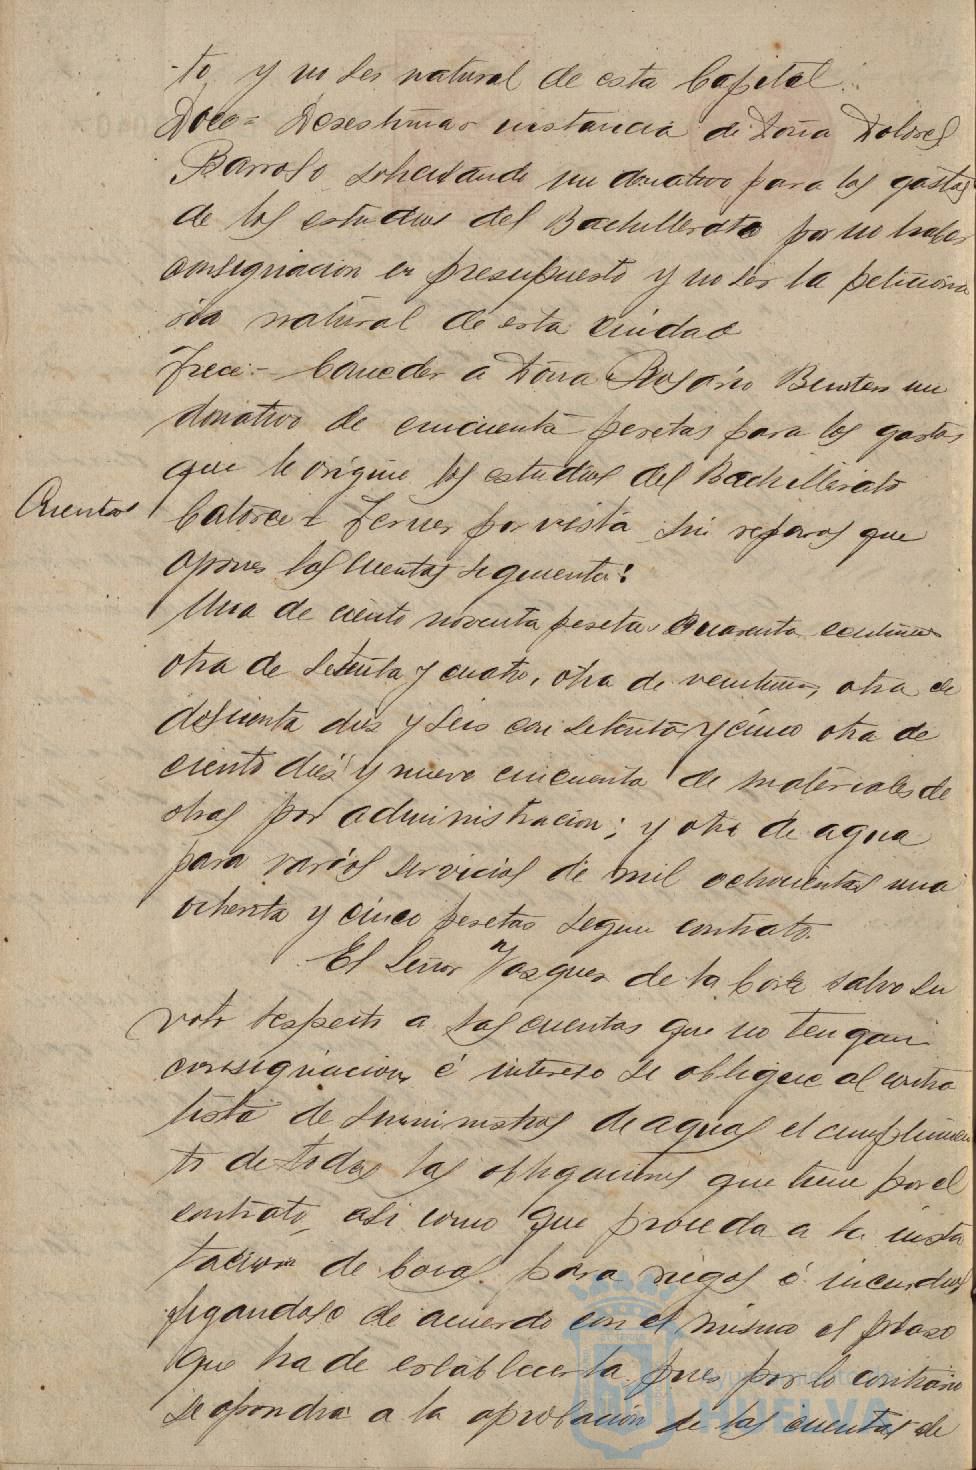 -to y no ser natural de esta Capital.
Doce = Desestimar instancia de Doña Dolores
Barroso solicitando un donativo para los gastos
de los estudios del Bachillerato por no haber
consignacion en presupuesto y no ser la peticiona
ria natural de esta ciudad
Trece.- Conceder a Doña Rosario Benitez un
donativo de cincuenta pesetas para los gastos
que le origine los estudios del Bachillerato
Cuentas
Catorce = Tener por vista sin reparos que
oponer las cuentas siguientes:
Una de ciento noventa pesetas cuarenta centimos
otra de setenta y cuatro, otra de veintiuna, otra de
doscienta dies y seis con setenta y cinco otra de
ciento dies y nueve cincuenta de materiales de
obras por administracion; y otra de agua
para varios servicios de mil ochocientas una
ochenta y cinco pesetas segun contrato.
El Señor Vazquez de la Corte salvo su
voto respecto a las cuentas que no tengan
consignacion, é intereso se obligue al contra
tista de suministros de aguas el cumplimien
to de todas las obligaciones que tiene por el
contrato, asi como que proceda a la insta
lacion de bocas para riegos é incendios
fijandose de acuerdo con el mismo el plazo
que ha de establecerla pues por lo contrario
se opondria a la aprobación de las cuentas de
Ayuntamiento de
HUELVA